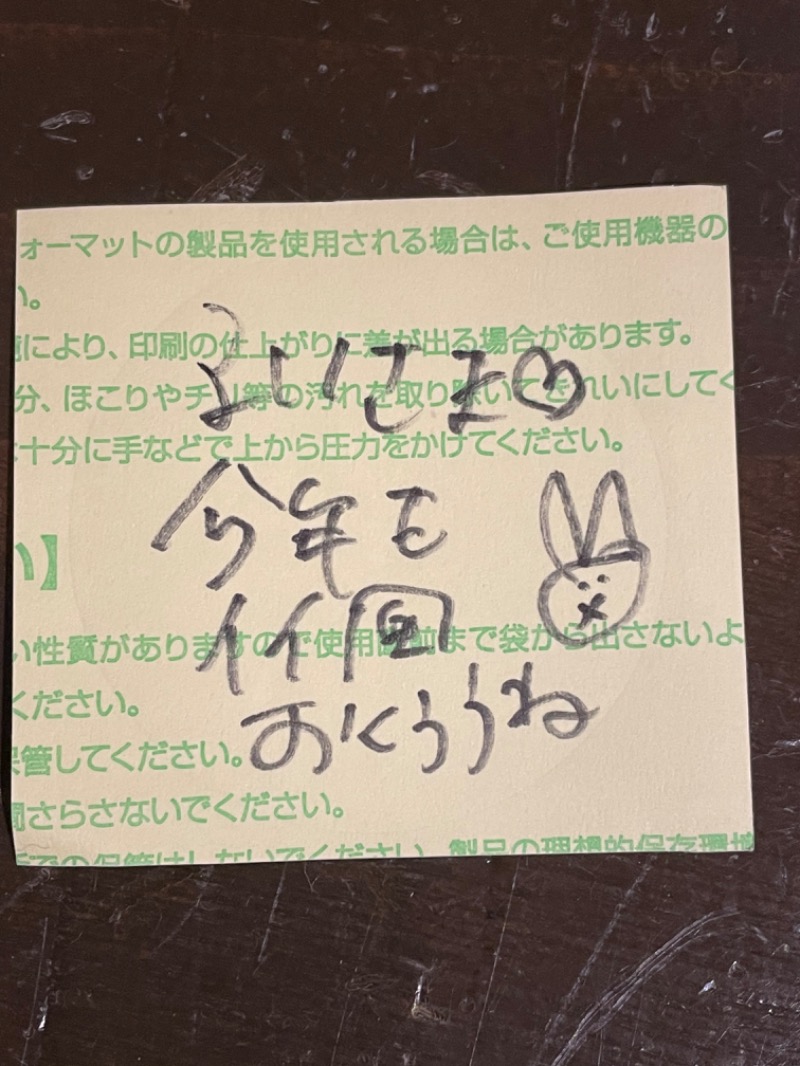 ォーマットの製品を使用される場合は、ご使用機器の
い。
により、印刷の仕上がりに差が出る場合があります。
分、ほこりやチリ等の汚れを取り除いてきれいにしてく
十分に手などで上から圧力をかけてください。
るいさま♡
今年も
イイ風
おくろうね
い】
い性質がありますのでご使用直前まで袋から出さないよ
ください。
保管してください。
間さらさないでください。
での保管はしないでください。製品の理想的保存環境